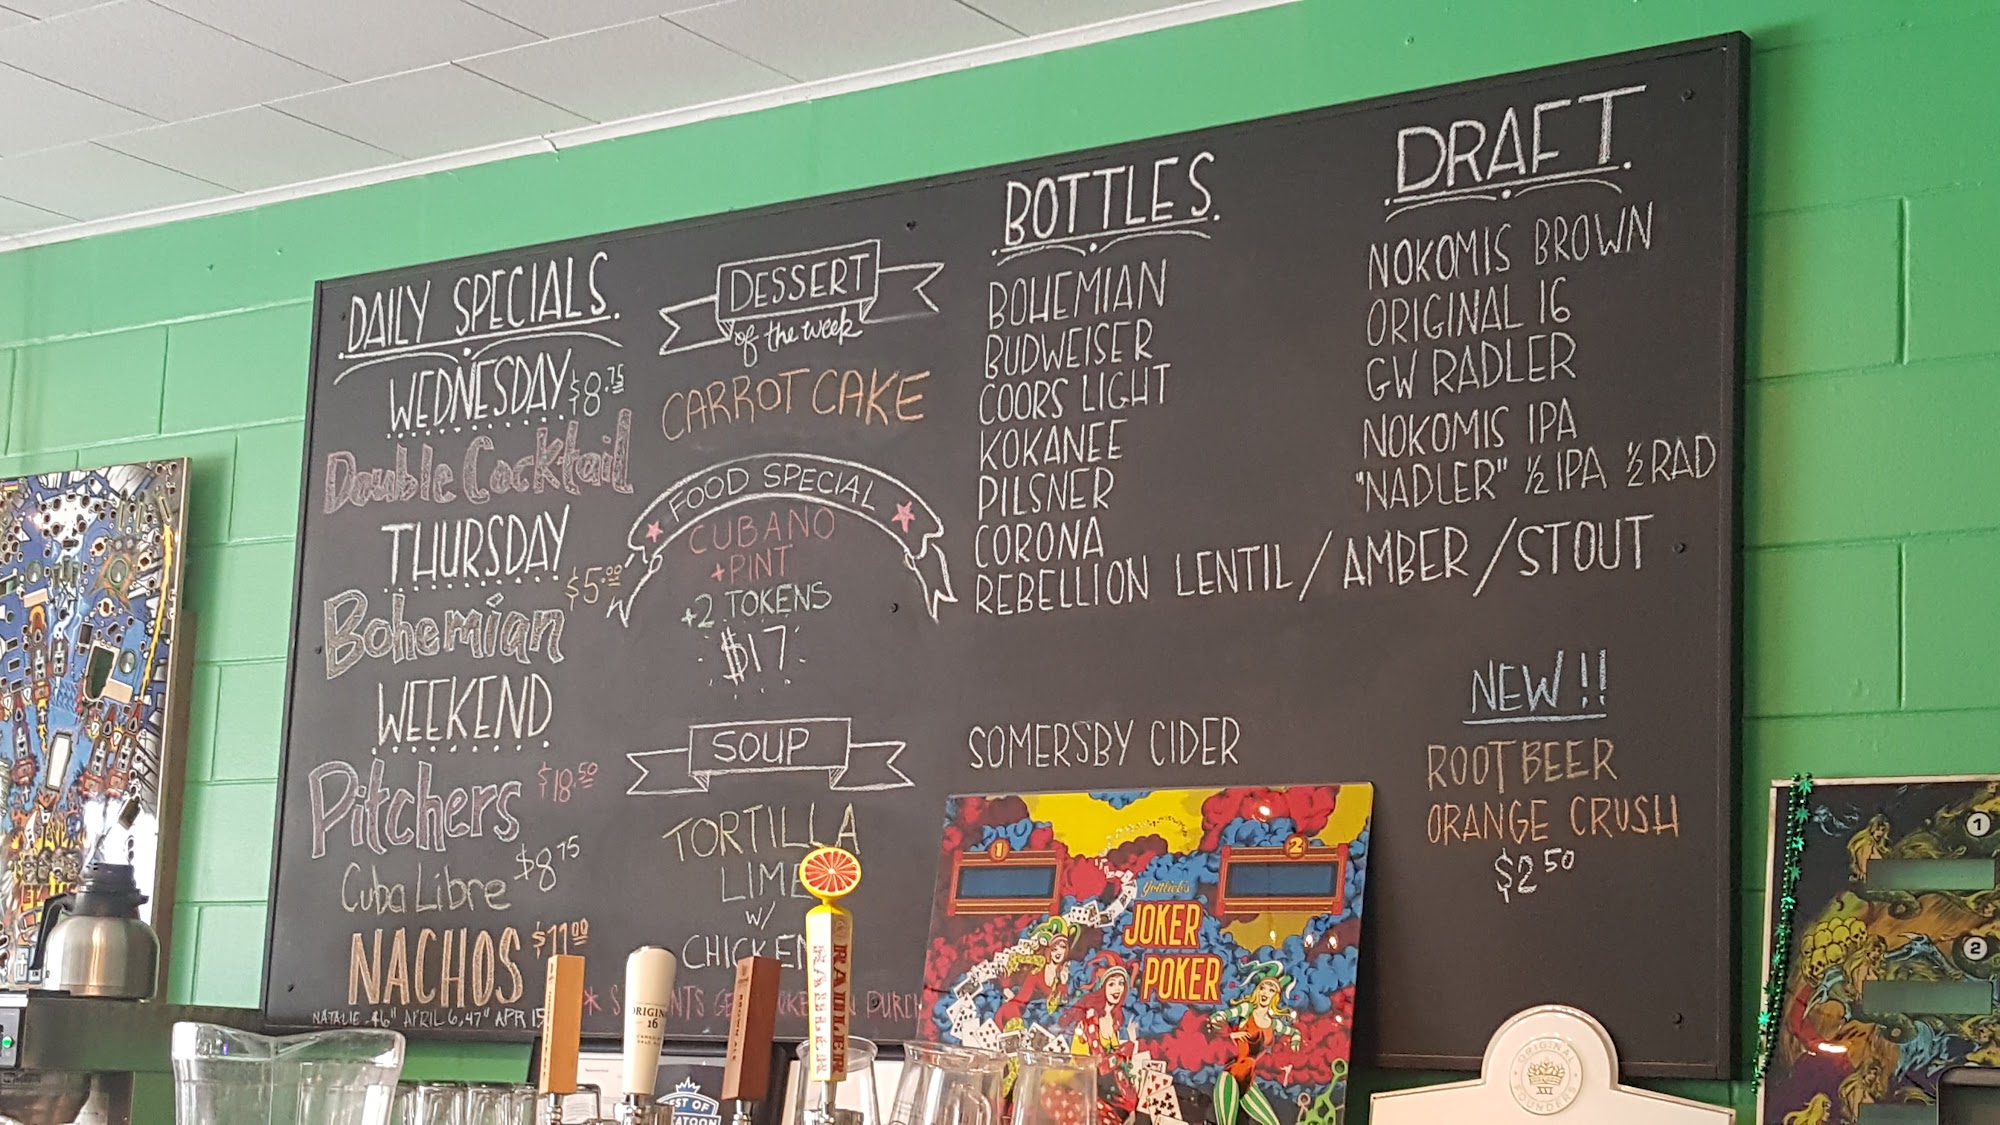 DAILY SPECIALS.
WEDNESDAY $8.75
Double Cocktail
THURSDAY
$5.00
Bohemian
WEEKEND
Pitchers $18.50
Cuba Libre $8.75
NACHOS $11.00
NATALIE .46" APRIL 6, 47" APR 15
DESSERT
of the week
CARROT CAKE
FOOD SPECIAL
CUBANO
+PINT
+2 TOKENS
$17
SOUP
TORTILLA
LIME
W/
CHICKEN
BOTTLES.
BOHEMIAN
BUDWEISER
COORS LIGHT
KOKANEE
PILSNER
CORONA
REBELLION LENTIL/AMBER/STOUT
SOMERSBY CIDER
DRAFT.
NOKOMIS BROWN
ORIGINAL 16
GW RADLER
NOKOMIS IPA
"NADLER" ½ IPA ½ RAD
NEW!!
ROOTBEER
ORANGE CRUSH
$2.50
1
2
Gottlieb's
JOKER
POKER
1
2
ORIGINAL
16
RADLER
ORIGINAL
XVI
FOUNDERS